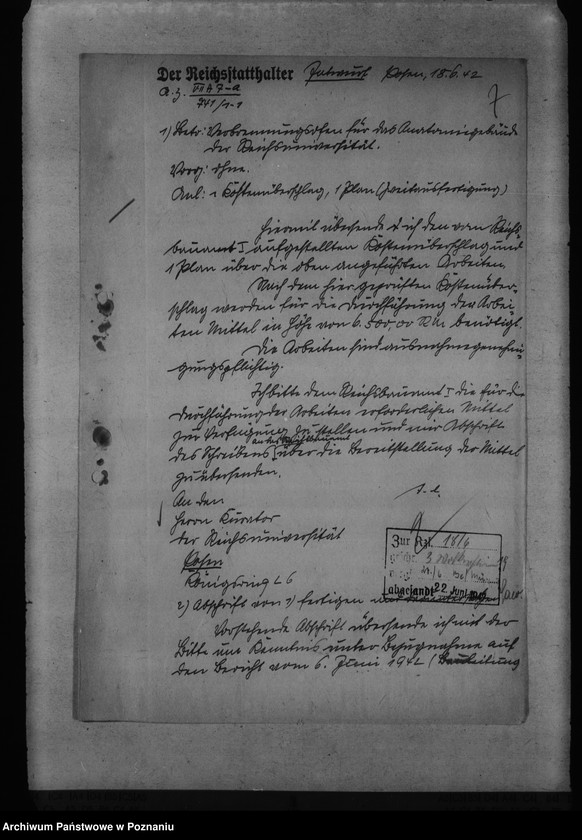 Der Reichsstatthalter Entwurf Posen, 18.6.42
A.z. VII A 7-a
741/1-1
7
1) Betr: Verbrennungsofen für das Anatomiegebäude
der Reichsuniversität.
Vorg: ohne.
Anl: 1 Kostenüberschlag, 1 Plan (Zweitausfertigung)
Hiermit übersende ich den vom Reichs-
bauamt I aufgestellten Kostenüberschlag und
1 Plan über die oben angeführten Arbeiten.
Nach dem hier geprüften Kostenüber-
schlag werden für die Durchführung der Arbei-
ten Mittel in Höhe von 6.500,00 RM benötigt.
Die Arbeiten sind ausnahmegenehmi-
gungspflichtig.
Ich bitte dem Reichsbauamt I die für die
Durchführung der Arbeiten erforderlichen Mittel
zur Verfügung zu stellen und mir Abschrift
an das Reichsbauamt
des Schreibens über die Bereitstellung der Mittel
zu übersenden.
An den
Herrn Kurator
der Reichsuniversität
Posen
Königsring 26
Zur Kzl. 18/6
abgesandt 22. Juni
2) Abschrift von 1) fertigen
Vorstehende Abschrift übersende ich mit der
Bitte um Kenntnis unter Bezugnahme auf
den Bericht vom 6. Juni 1942 (Bauleitung
Archiwum Państwowe w Poznaniu